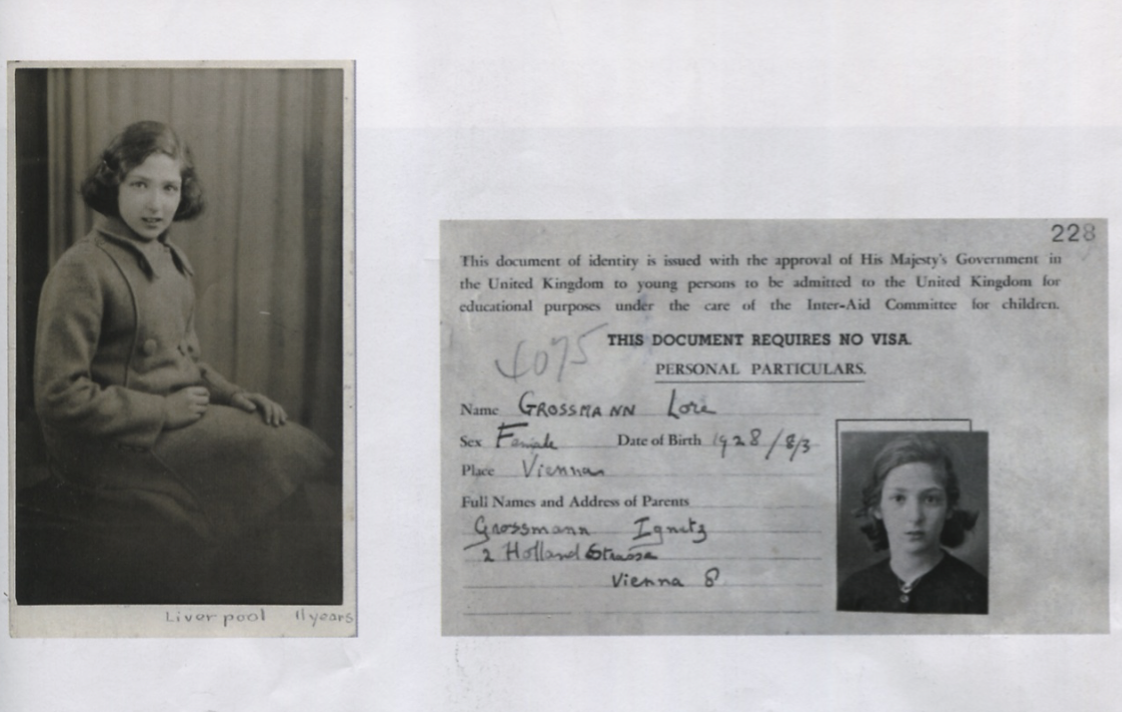 Liverpool 11years
228
This document of identity is issued with the approval of His Majesty's Government in
the United Kingdom to young persons to be admitted to the United Kingdom for
educational purposes under the care of the Inter-Aid Committee for children.
THIS DOCUMENT REQUIRES NO VISA.
4075
PERSONAL PARTICULARS.
Name GROSSMANN Lore
Sex Female Date of Birth 1928/8/3
Place Vienna
Full Names and Address of Parents
Grossmann Ignatz
2 Holland Strasse
Vienna 8